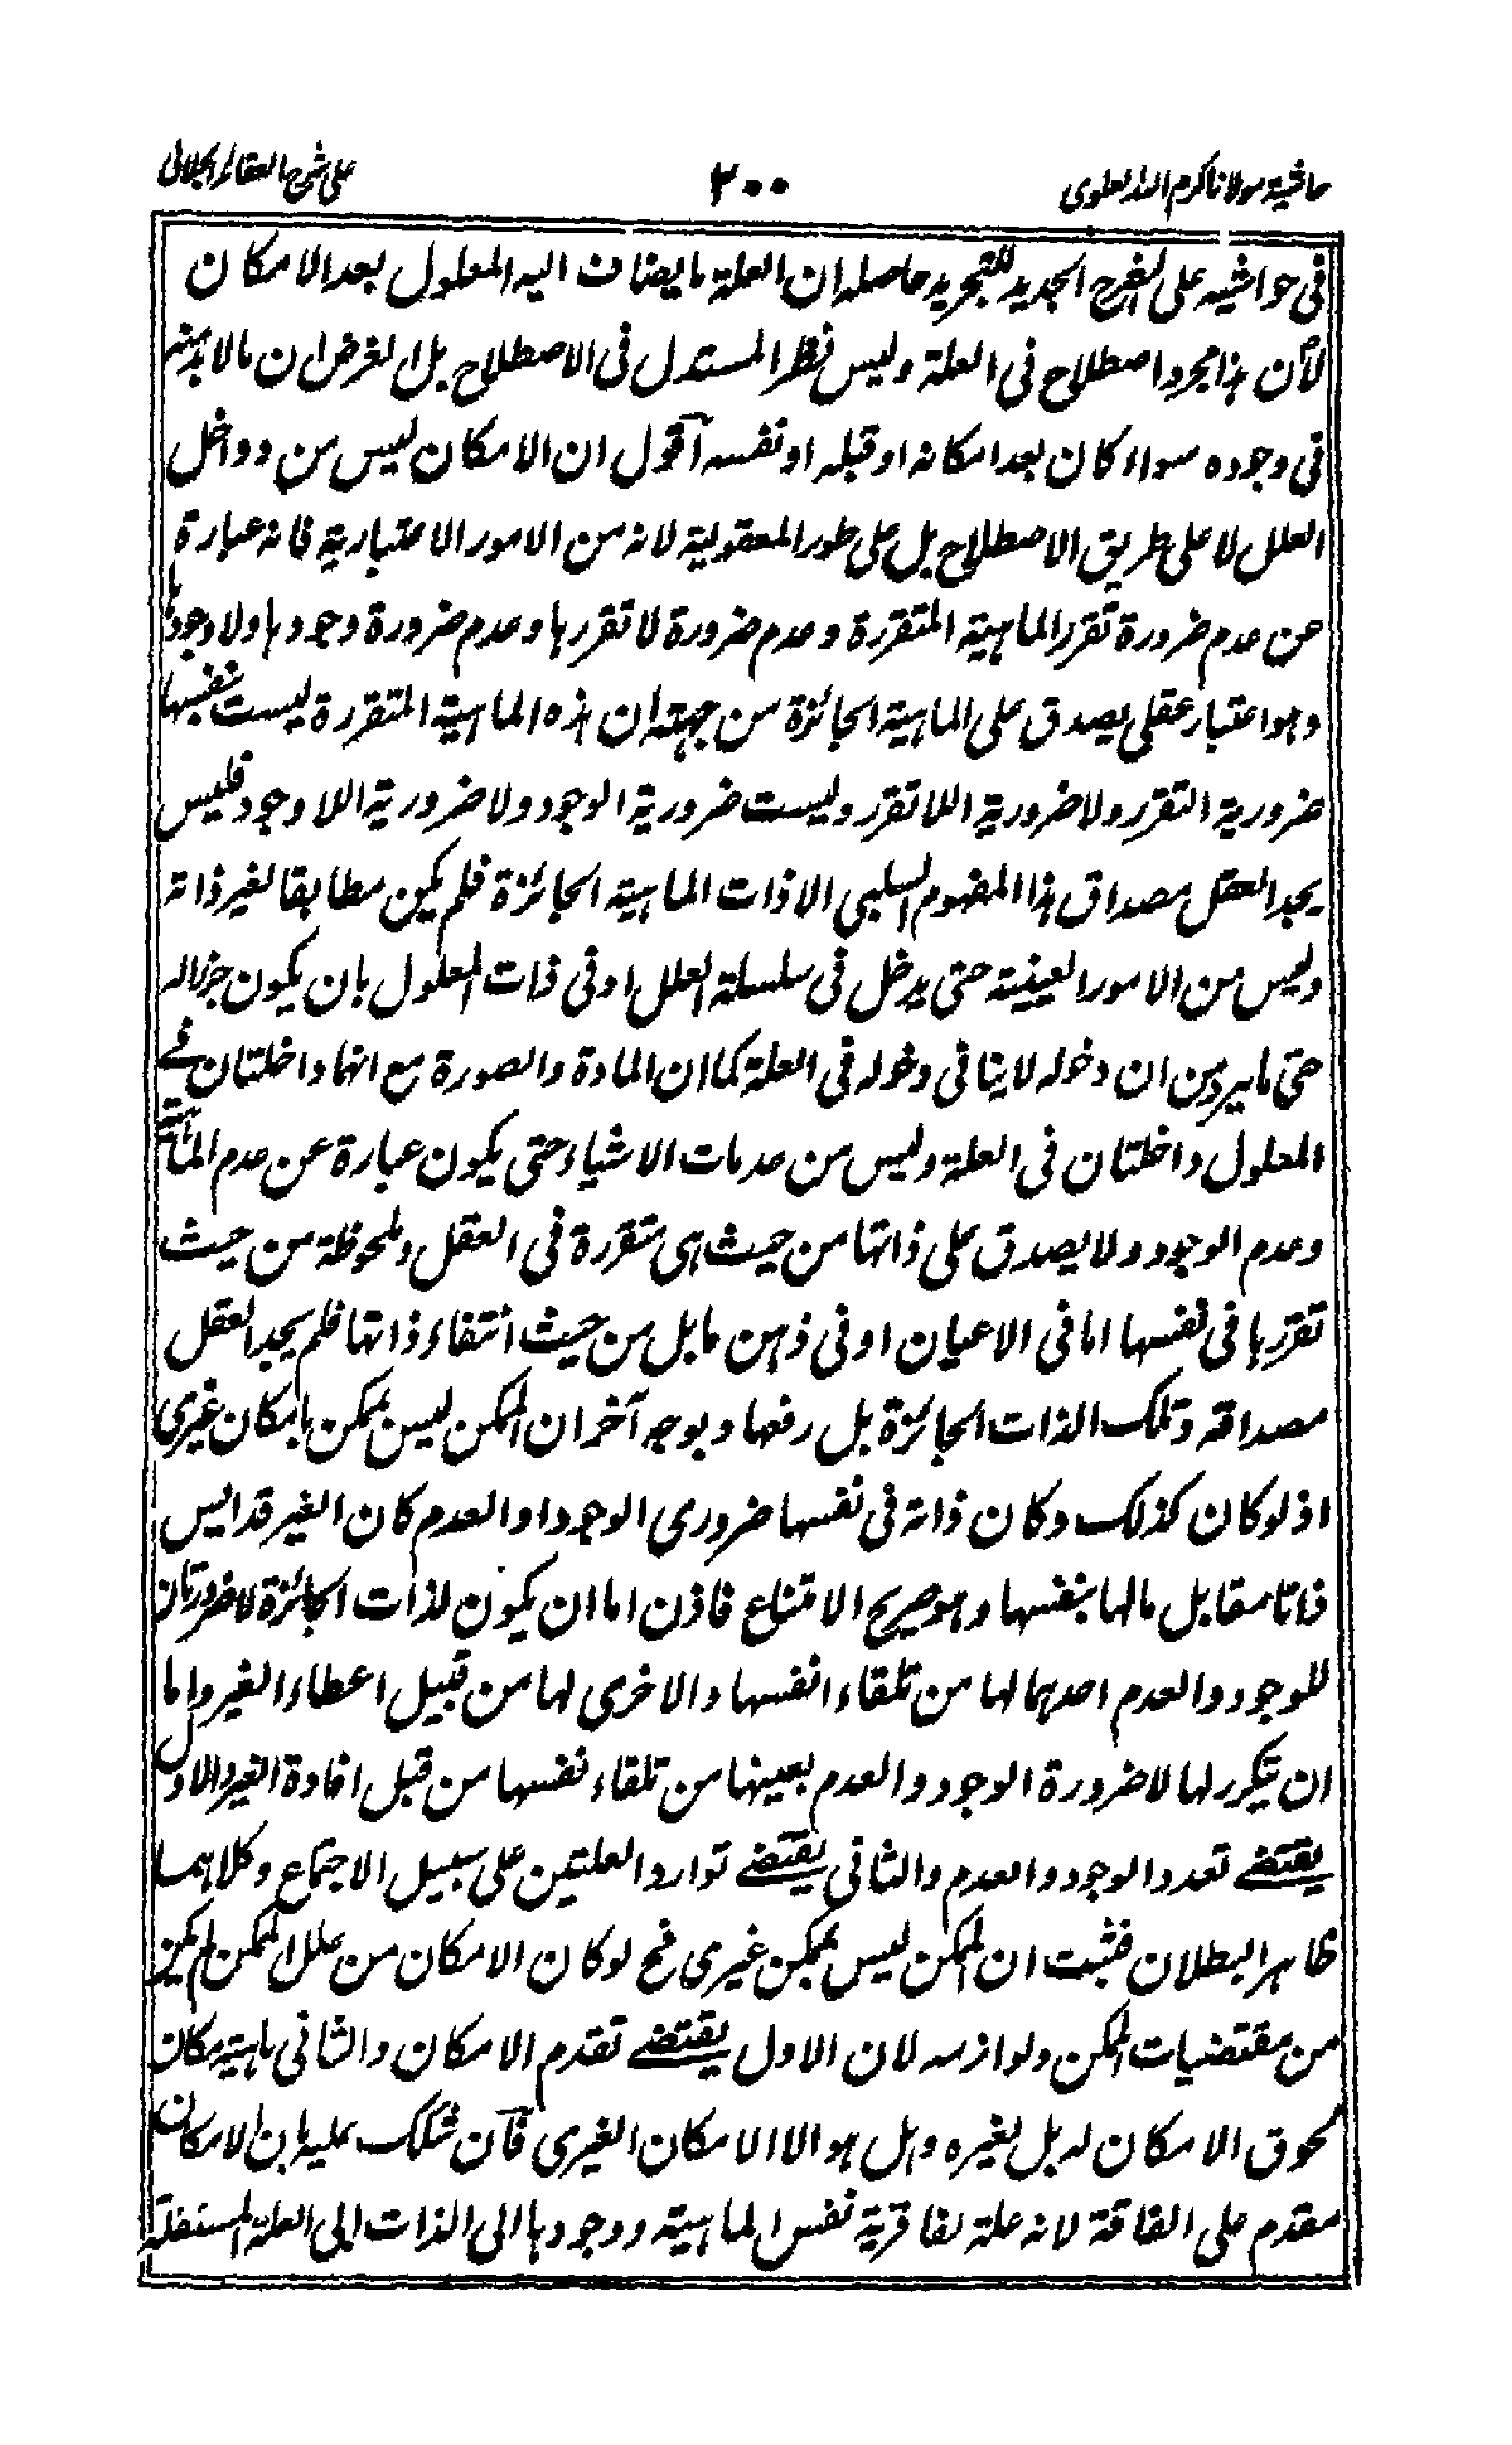 حاشية مولانا كرم الله العلوى
٢٠٠
على شرح العقائد الجلالى
فى حواشيه على الشرح الجديد للتجريد حاصله ان العلة ما يضاف اليه المعلول بعد الامكان
لآن هذا مجرد اصطلاح فى العلة وليس نظر المستدل فى الاصطلاح بل الغرض ان ما لا بد منه
فى وجوده سواء كان بعد امكانه او قبله او نفسه آقول ان الامكان ليس من دواخل
العلل لا على طريق الاصطلاح بل على طور المعقولية لانه من الامور الاعتبارية فانه عبارة
عن عدم ضرورة تقرر الماهية المتقررة وعدم ضرورة لا تقررها وعدم ضرورة وجودها ولا وجودها
وهو اعتبار عقلى يصدق على الماهية الجائزة من جهة ان هذه الماهية المتقررة ليست بنفسها
ضرورية التقرر ولا ضرورية اللا تقرر وليست ضرورية الوجود ولا ضرورية اللا وجود فليس
يجد العقل مصداق هذا المفهوم السلبى الا ذات الماهية الجائزة فلم يكن مطابقا لغير ذاته
وليس من الامور العينية حتى يدخل فى سلسلة العلل او فى ذات المعلول بان يكون جزا له
حتى ما يرد من ان دخوله لا ينافى دخوله فى العلة كما ان المادة والصورة مع انهما داخلتان فے
المعلول داخلتان فى العلة وليس من عدمات الاشياء حتى يكون عبارة عن عدم الماهية
وعدم الوجود ولا يصدق على ذاتها من حيث هى متقررة فى العقل وملحوظة من حيث
تقررها فى نفسها اما فى الاعيان او فى ذهن ما بل من حيث انتفاء ذاتها فلم يجد العقل
مصداقه وتلك الذات الجائزة بل رفعها وبوجه آخر ان الممكن ليس بممكن بامكان غيرى
اذ لو كان كذلك وكان ذاته فى نفسها ضرورى الوجود او العدم كان الغير قد ايس
ذاتا مقابل ما لها بنفسها وهو صريح الامتناع فاذن اما ان يكون لذات الجائزة لا ضرورتان
للوجود والعدم احدهما لها من تلقاء انفسها والاخرى لها من قبيل اعطاء الغير واما
ان يتكرر لها لا ضرورة الوجود والعدم بعينها من تلقاء نفسها من قبل افادة الغير والاول
يقتضے تعدد الوجود والعدم والثانى يقتضے توارد العلتين على سبيل الاجتماع وكلاهما
ظاهر البطلان فثبت ان الممكن ليس بممكن غيرى فح لو كان الامكان من علل الممكن لم يكن
من مقتضيات الممكن ولوازمه لان الاول يقتضے تقدم الامكان والثانى
لحوق الامكان له بل لغيره وهل هو الا الامكان الغيرى فآن شكك عليه بان الامكان
مقدم على الفاقة لانه علة لفاقرية نفس الماهية ووجودها الى الذات الى العلة